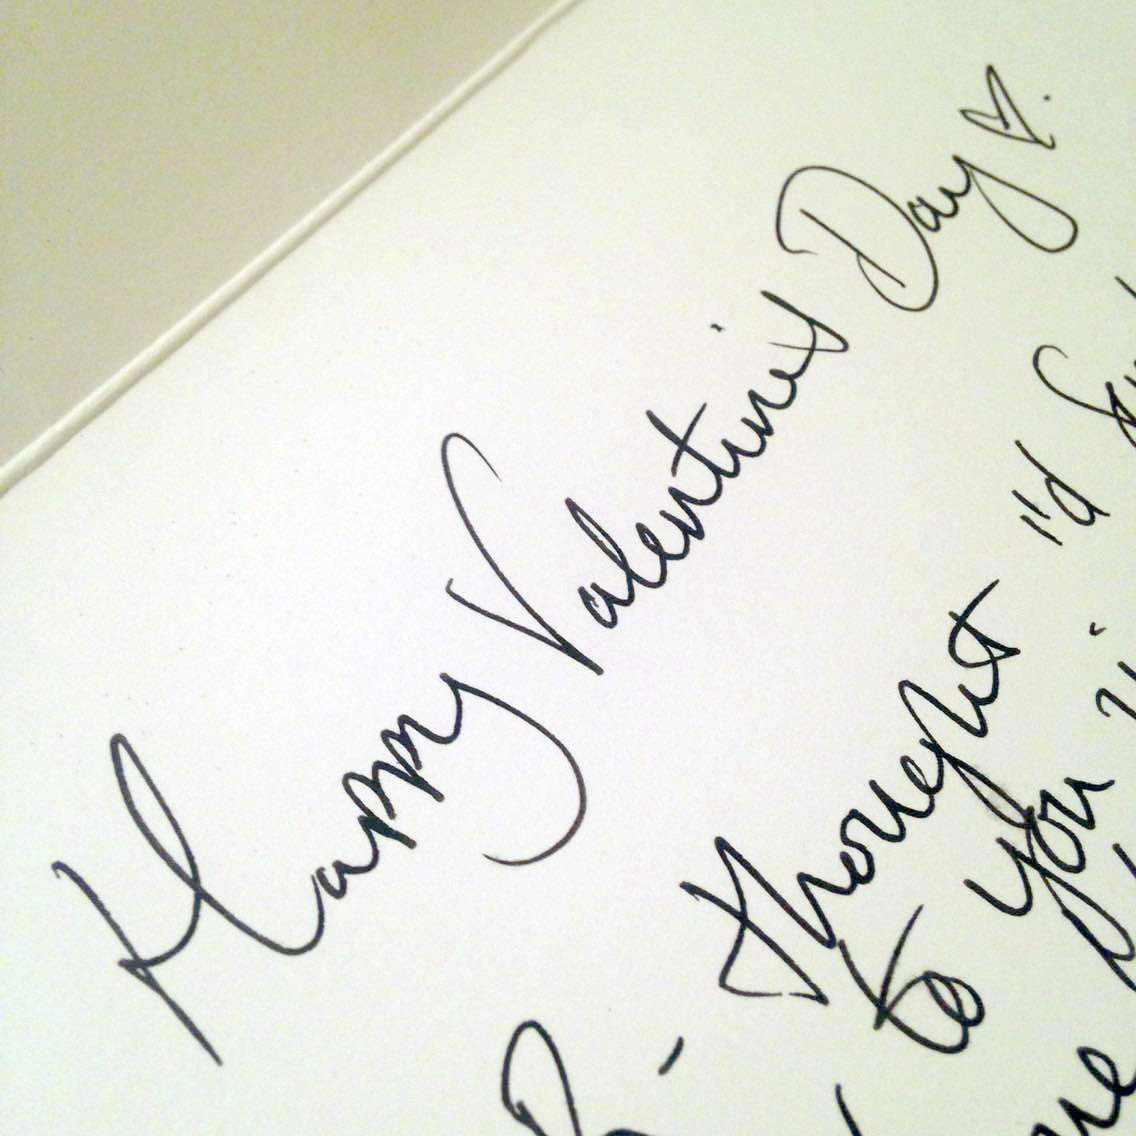 Happy Valentine's Day ♡.
- thought I'd
to you